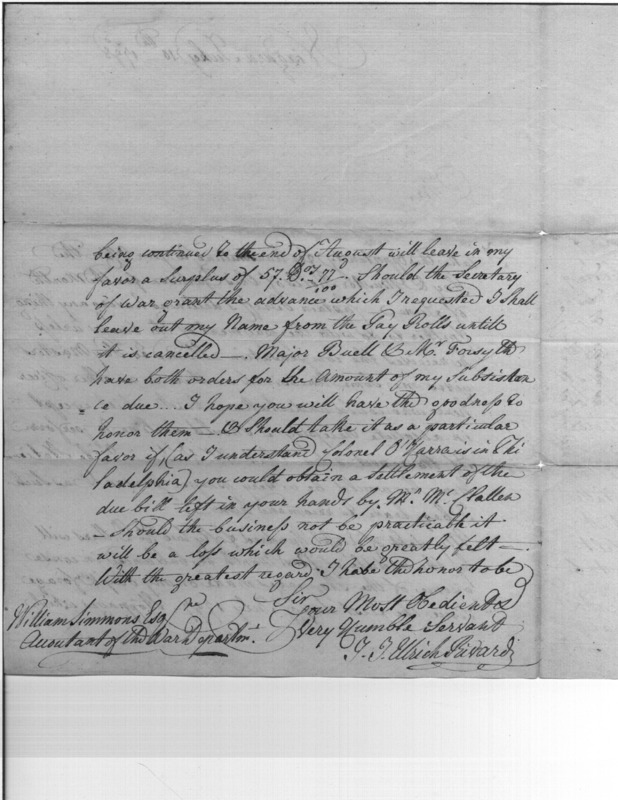 being continued to the end of August will leave in my
favor a Surplus of 57. Dos. 77/100. Should the Secretary
of War grant the advance which I requested I shall
leave out my Name from the Pay Rolls untill
it is cancelled —. Major Buell & Mr. Forsyth
have both orders for the Amount of my Subsisten
ce due... I hope you will have the goodness to
honor them — & Should take it as a particular
favor if, (as I understand Colonel O'Harra is in Phi
ladelphia) you could obtain a settlement of the
due bill left in your hands by Mr. Mc. Hallen
— Should the business not be practicable it
will be a loss which would be greatly felt —.
With the greatest regard I have the honor to be
Sir
your Most Obedient &
Very Humble Servant
J. J. Ulrich Rivardi
William Simmons Esqre
Accotant of the War Departmt.